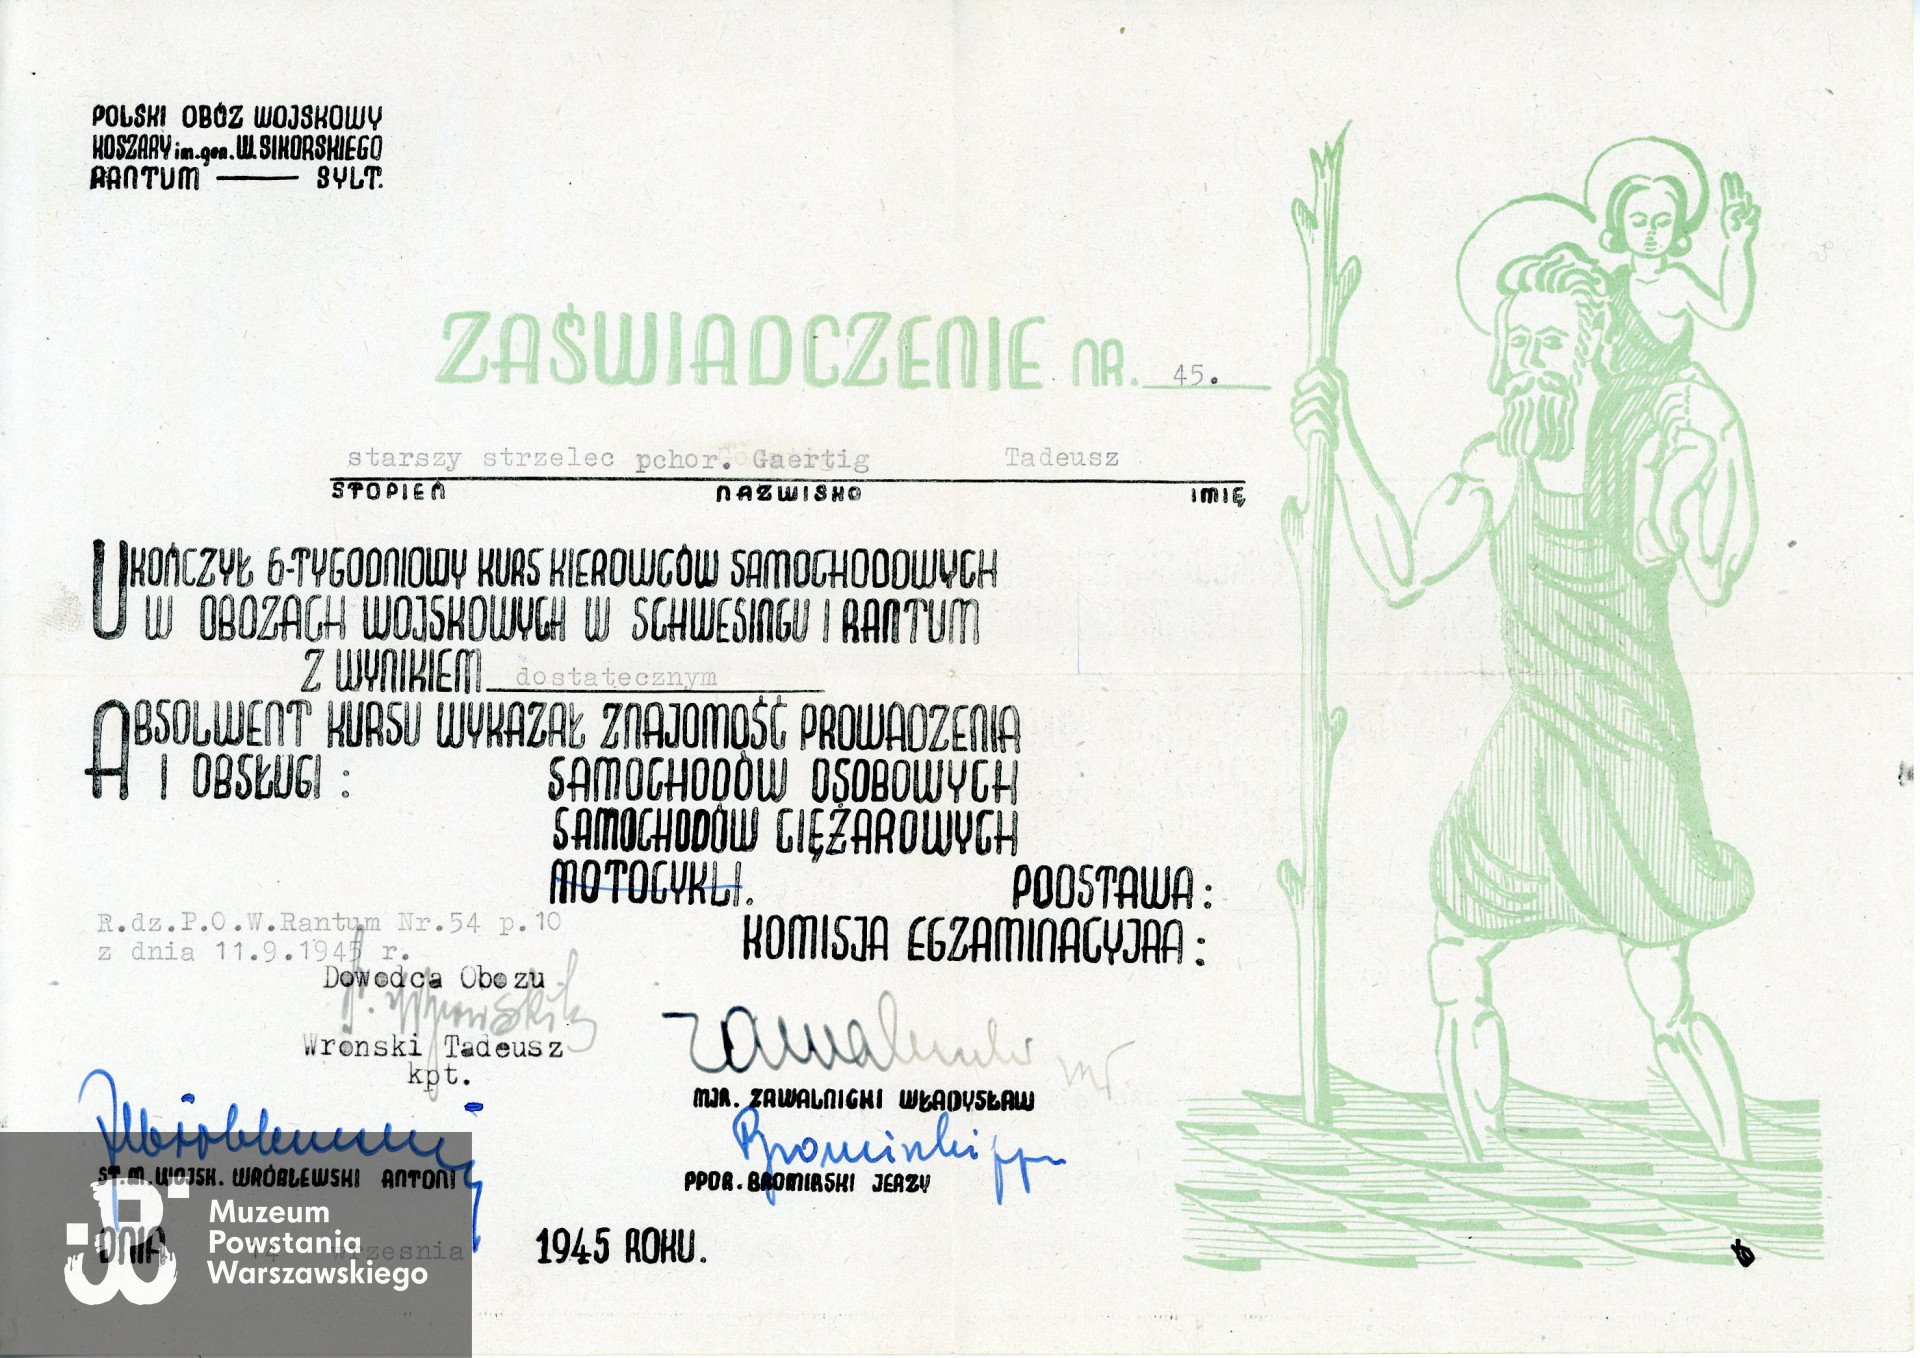 POLSKI OBÓZ WOJSKOWY
KOSZARY im. gen. W. SIKORSKIEGO
RANTUM — SYLT.
ZAŚWIADCZENIE NR. 45.
starszy strzelec pchor. Gaertig Tadeusz
STOPIEŃ NAZWISKO IMIĘ
UKOŃCZYŁ 6-TYGODNIOWY KURS KIEROWCÓW SAMOCHODOWYCH
W OBOZACH WOJSKOWYCH W SCHWESINGU I RANTUM
Z WYNIKIEM dostatecznym
ABSOLWENT KURSU WYKAZAŁ ZNAJOMOŚĆ PROWADZENIA
I OBSŁUGI: SAMOCHODÓW OSOBOWYCH
SAMOCHODÓW CIĘŻAROWYCH
MOTOCYKLI. PODSTAWA:
R.dz.P.O.W.Rantum Nr.54 p.10
KOMISJA EGZAMINACYJAA:
z dnia 11.9.1945 r.
Dowodca Obozu
Wronski Tadeusz
kpt.
MJR. ZAWALNICKI WŁADYSŁAW
Bromirski ppr
ST.M.WOJSK. WRÓBLEWSKI ANTONI
PPOR. BROMIRSKI JERZY
DNIA 14 września 1945 ROKU.
Muzeum
Powstania
Warszawskiego